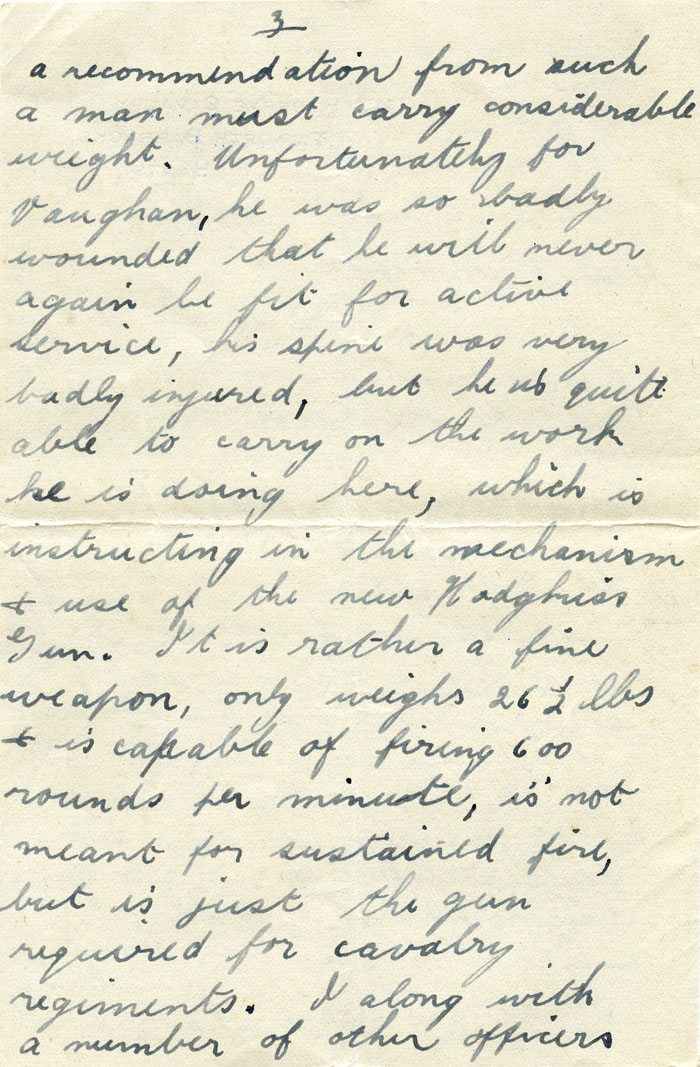 3
a recommendation from such
a man must carry considerable
weight. Unfortunately for
Vaughan, he was so badly
wounded that he will never
again be fit for active
service, his spine was very
badly injured, but he is quite
able to carry on the work
he is doing here, which is
instructing in the mechanism
& use of the new Hodgkiss
Gun. It is rather a fine
weapon, only weighs 26 1/2 lbs
& is capable of firing 600
rounds per minute, is not
meant for sustained fire,
but is just the gun
required for cavalry
regiments. I along with
a number of other officers